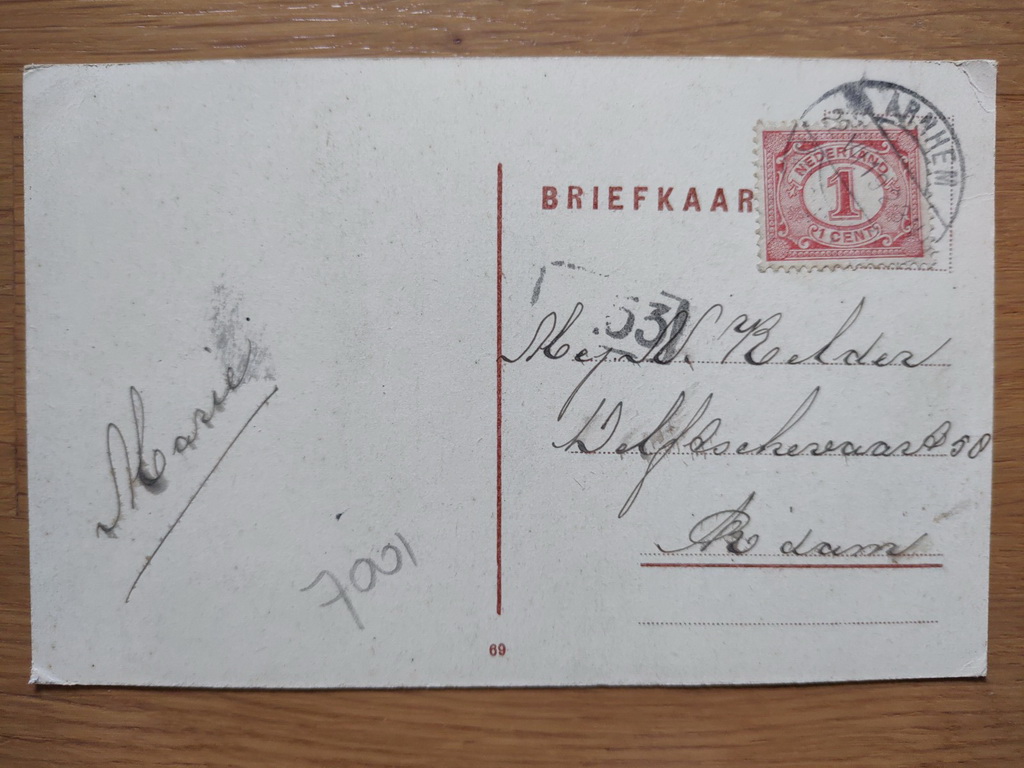 ARNHEM
NEDERLAND
1
1 CENT
BRIEFKAAR
53
Mej. W. Kelder
Delftschevaart 58
R'dam
Marie
7001
69